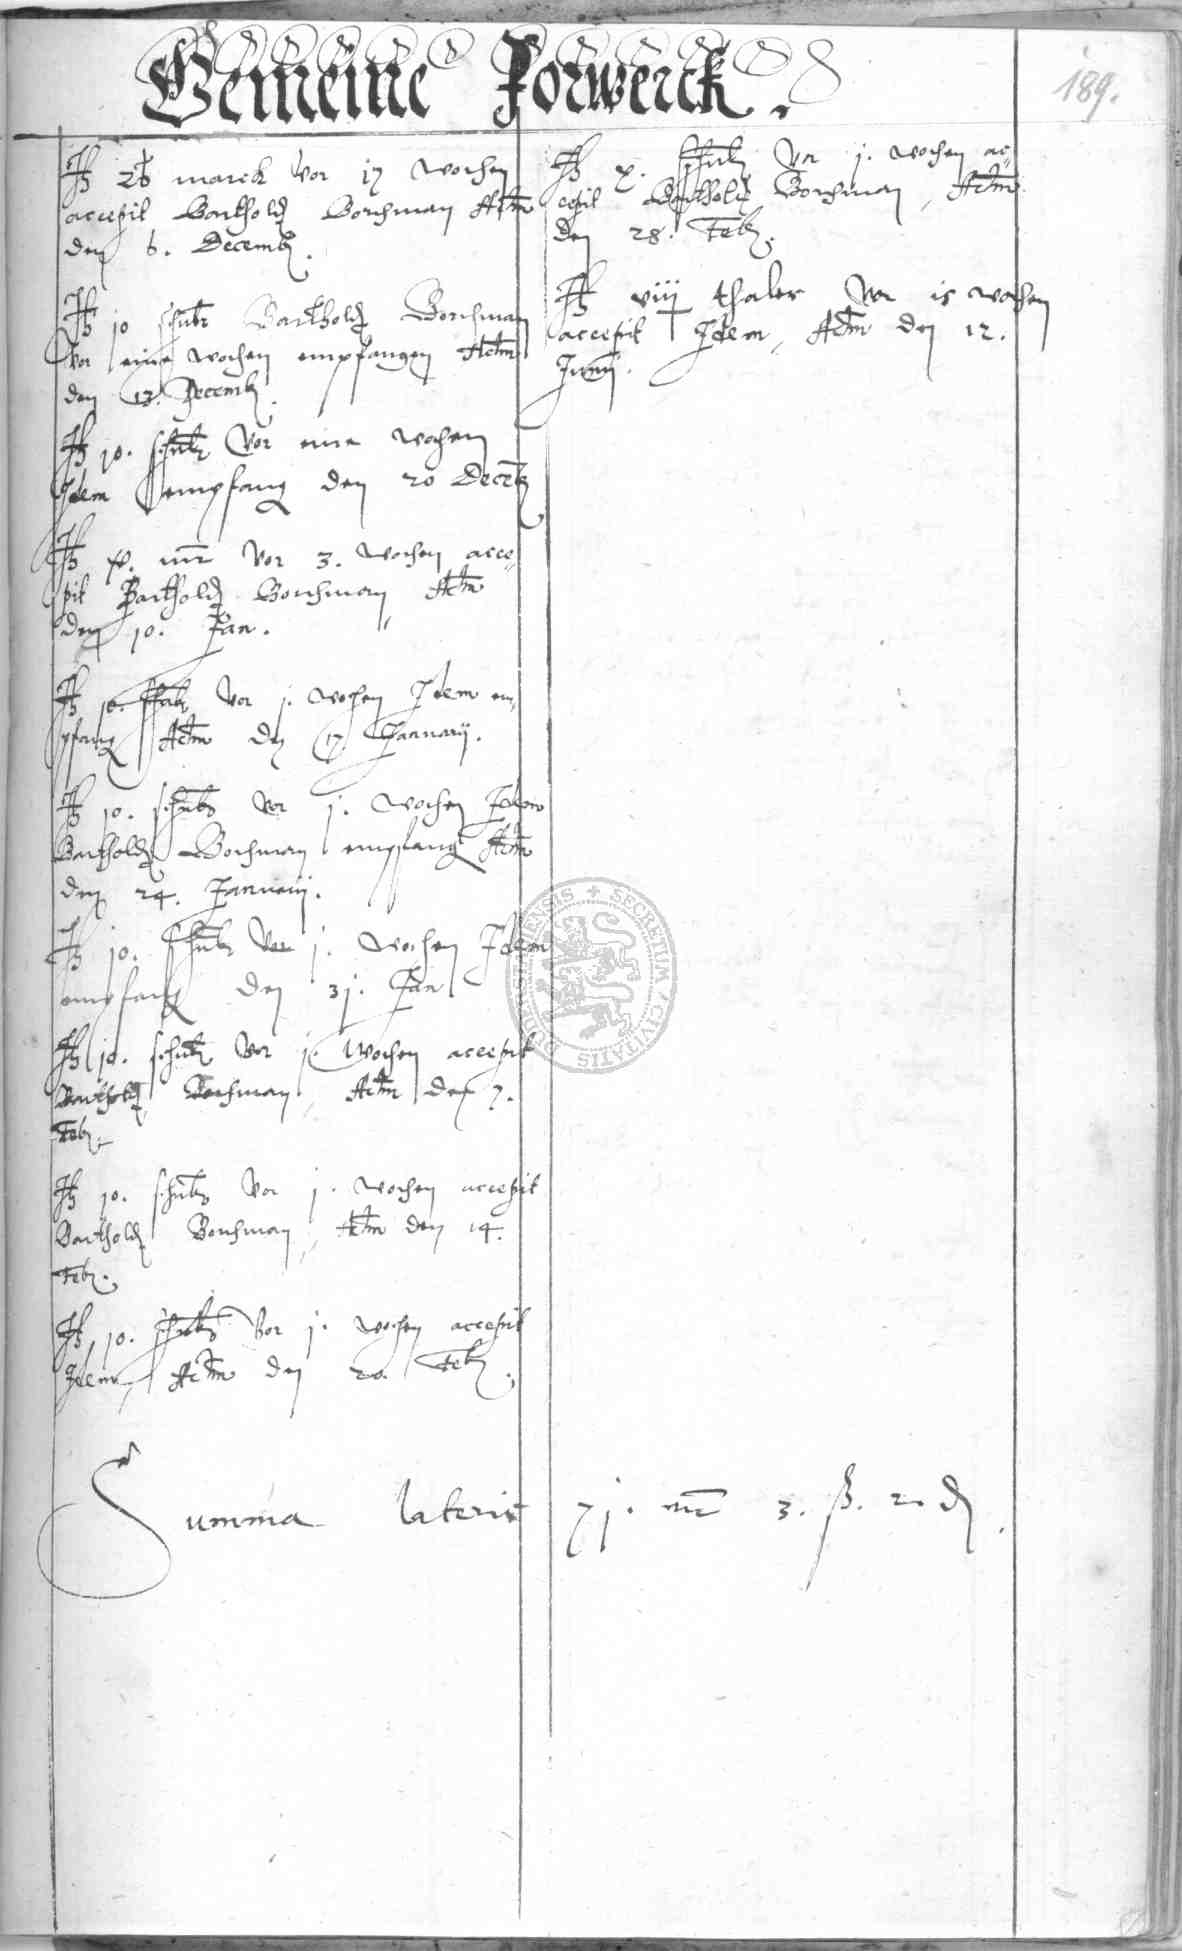 Gemeine Forwerck.
189.
marck vor 17 wochen
accepit Barthold Borchman Actm
den 6. Decemb.
10 schub Barthold Borchman
vor eine wochen empfangen Actm
den 13. Decemb.
10. schub vor eine wochen
Idem empfang den 20 Decemb
vor 3. wochen acce-
pit Barthold Borchman Actm
den 10. Jan.
10. schub vor j. wochen Idem em-
pfang Actm den 17 January.
10. schub vor j. wochen Idem
Barthold Borchman empfang Actm
den 24. January.
10. schub vor j. wochen Idem
empfang den 3j. Jan
10. schub vor j. wochen accepit
Barthold Borchman, Actm den 7.
Feb.
10. schub vor j. wochen accepit
Barthold Borchman, Actm den 14.
Feb.
10. schub vor j. wochen accepit
Idem, Actm den 20. Feb.
x. schub vor j. wochen ac-
cepit Barthold Borchman, Actm
den 28. Feb.
viij thaler vor 15 wochen
accepit Idem, Actm den 12.
Junii.
Summa lateris 7j. mr 3. ß. 2 d.
SECRETUM CIVITATIS DUDERSTADENSIS